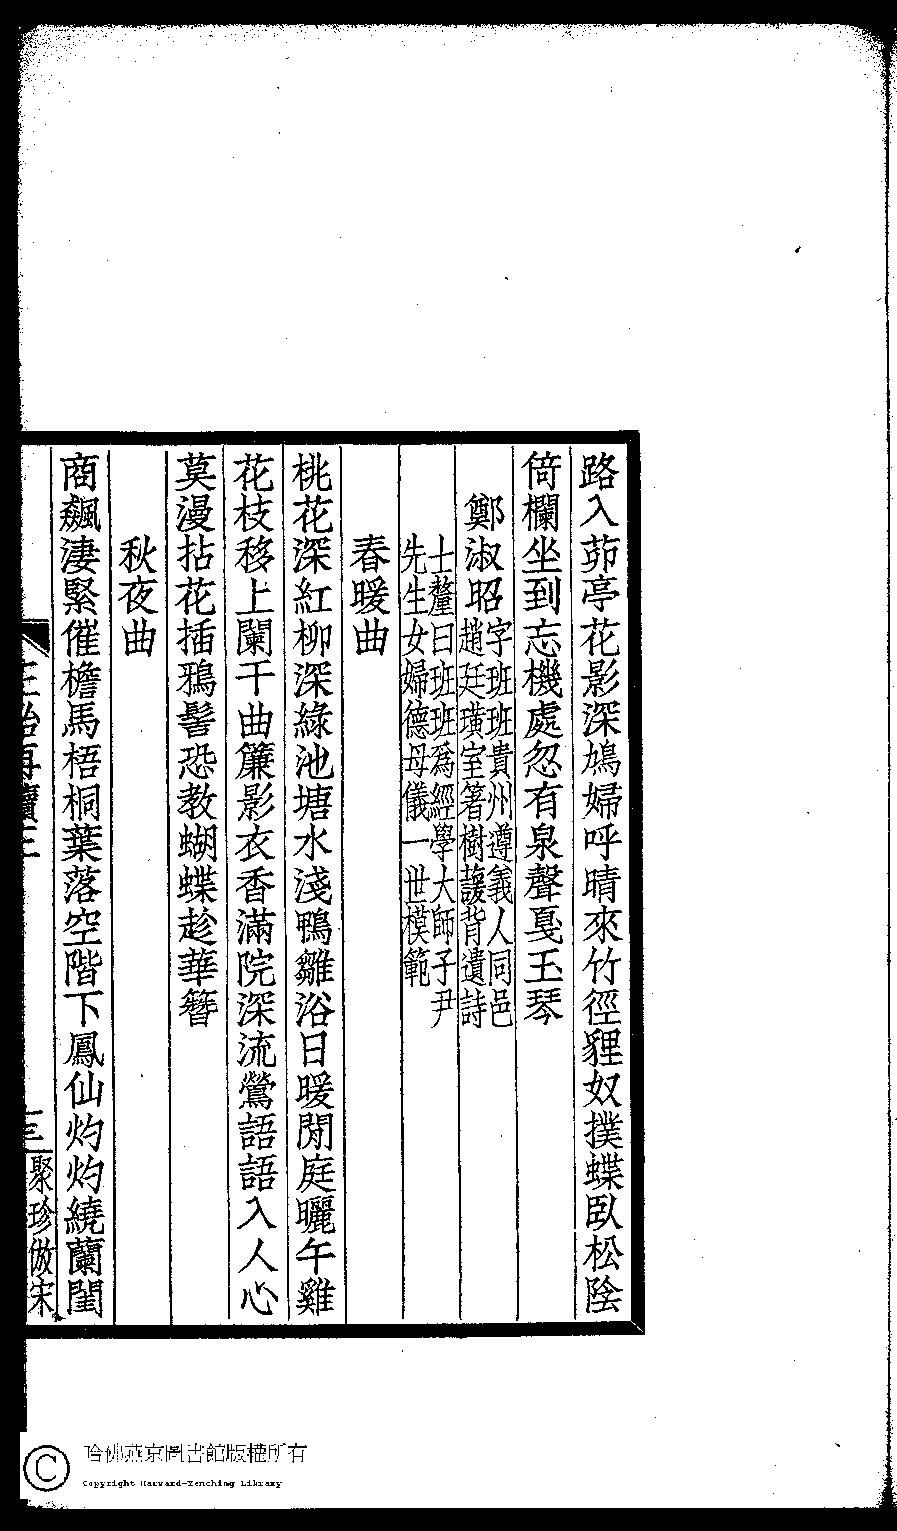 路入茆亭花影深鳩婦呼晴來竹徑貍奴撲蝶臥松陰
倚欄坐到忘機處忽有泉聲戛玉琴
鄭淑昭
字班班貴州遵義人同邑
趙廷璜室箸樹蘐背遺詩
士釐曰班班爲經學大師子尹
先生女婦德母儀一世模範
春暖曲
桃花深紅柳深綠池塘水淺鴨雛浴日暖閒庭曬午雞
花枝移上闌干曲簾影衣香滿院深流鶯語語入人心
莫漫拈花插鴉髻恐教蝴蝶趁華簪
秋夜曲
商飆淒緊催檐馬梧桐葉落空階下鳳仙灼灼繞蘭閨
再續三
三
聚珍倣宋
哈佛燕京圖書館版權所有
Copyright Harvard-Yenching Library